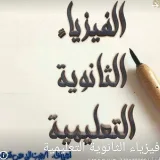 الفيزياء
الثانوية
التعليمية
فيزياء الثانوية التعليمية